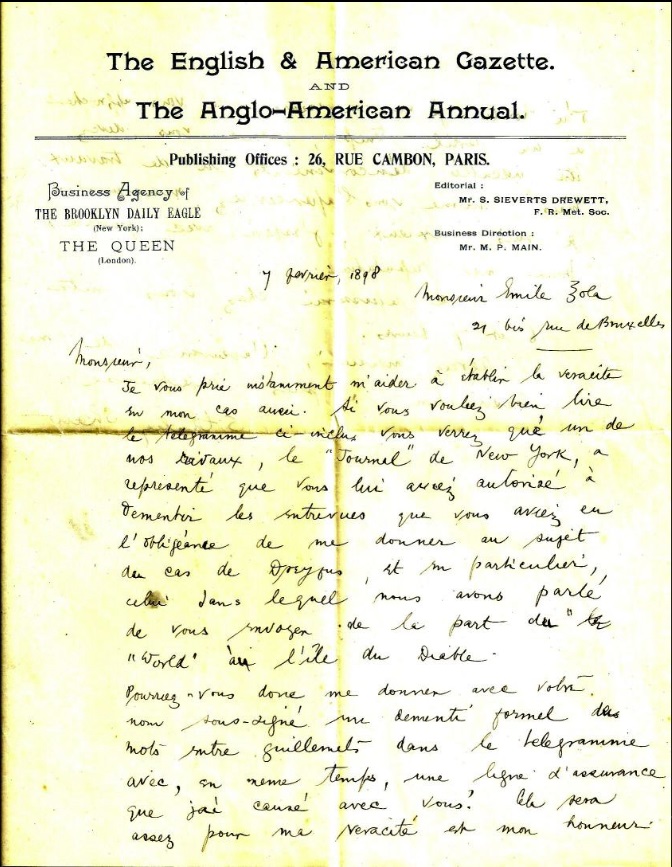 The English & American Gazette.
AND
The Anglo-American Annual.
Publishing Offices : 26, RUE CAMBON, PARIS.
Business Agency of
THE BROOKLYN DAILY EAGLE
(New York);
THE QUEEN
(London).
Editorial :
Mr. S. SIEVERTS DREWETT,
F. R. Met. Soc.
Business Direction :
Mr. M. P. MAIN.
7 fevrier, 1898
Monsieur Emile Zola
21 bis rue de Bruxelles
Monsieur,
Je vous prie instamment m'aider à établir la veracite
en mon cas aussi. Si vous vouliez bien lire
le telegramme ci-inclus vous verrez que un de
nos rivaux, le "Journal" de New York, a
représenté que vous lui aviez autorisé à
dementir les entrevues que vous aviez eu
l'obligeance de me donner au sujet
du cas de Dreyfus, et en particulier,
celui dans lequel nous avons parlé
de vous envoyer de la part du
"World" à l'île du Diable.
Pourriez-vous donc me donner avec votre
nom sous-signé un dementi formel des
mots entre guillemets dans le telegramme
avec, en meme temps, une ligne d'assurance
que j'ai causé avec vous? Cela sera
assez pour ma veracité et mon honneur.